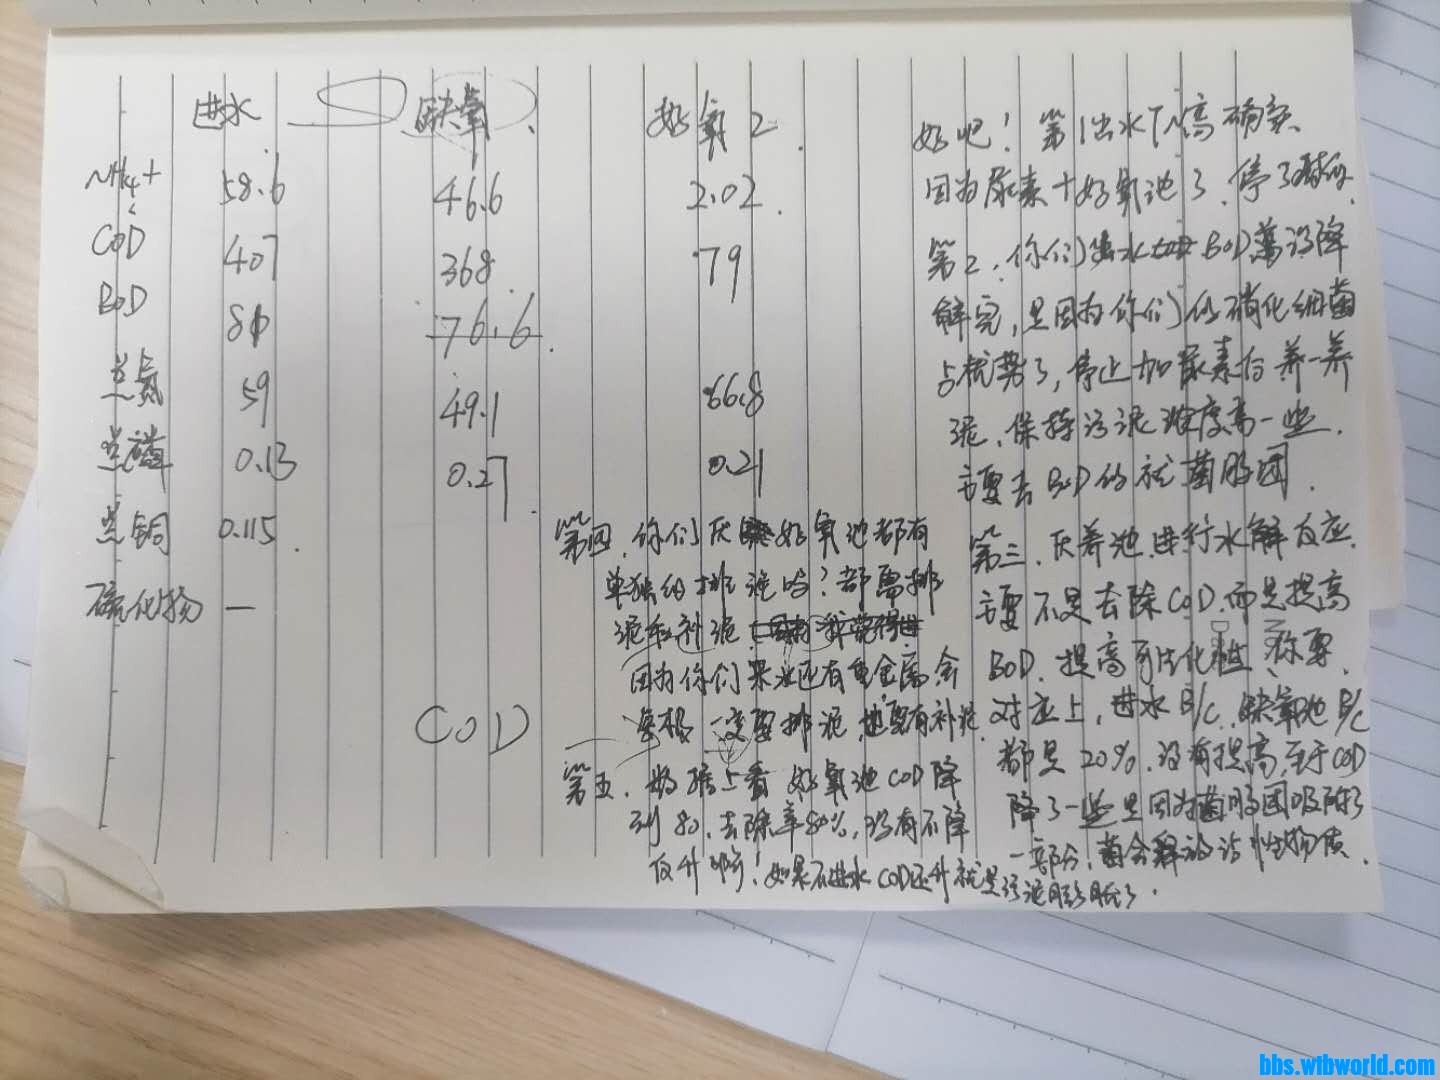 进水 缺氧 好氧2
NH4+ 58.6 46.6 2.02
COD 407 368 79
BOD 81 76.6
总氮 59 49.1 66.8
总磷 0.13 0.27 0.21
总铜 0.115
硫化物 —
COD
好吧！第1出水TN高确实
因为尿素+好氧池了，停了
第2，你们出水 BOD 没降
解完，是因为你们的硝化细菌
占优势了，停止加尿素后养一养
泥，保持污泥浓度高一些，
主要去BOD的就菌胶团．
第三，厌养池进行水解反应．
主要不是去除COD，而是提高
BOD．提高可生化性，你要
对应上，进水B/C，缺氧池B/C
都是20%．没有提高，至于COD
降了一些是因为菌胶团吸附了
一部分，菌会释放 性物质．
第四，你们厌 好氧池都有
单独的排泥吗？都需排
泥和补泥
因为你们果水还有重金属，会
一定要排泥，也要有补泥．
第五，数据上看好氧池COD降
到80，去除率80%，没有不降
反升啊！如果不进水COD还升就是污泥膨胀了．
bbs.wtbworld.com